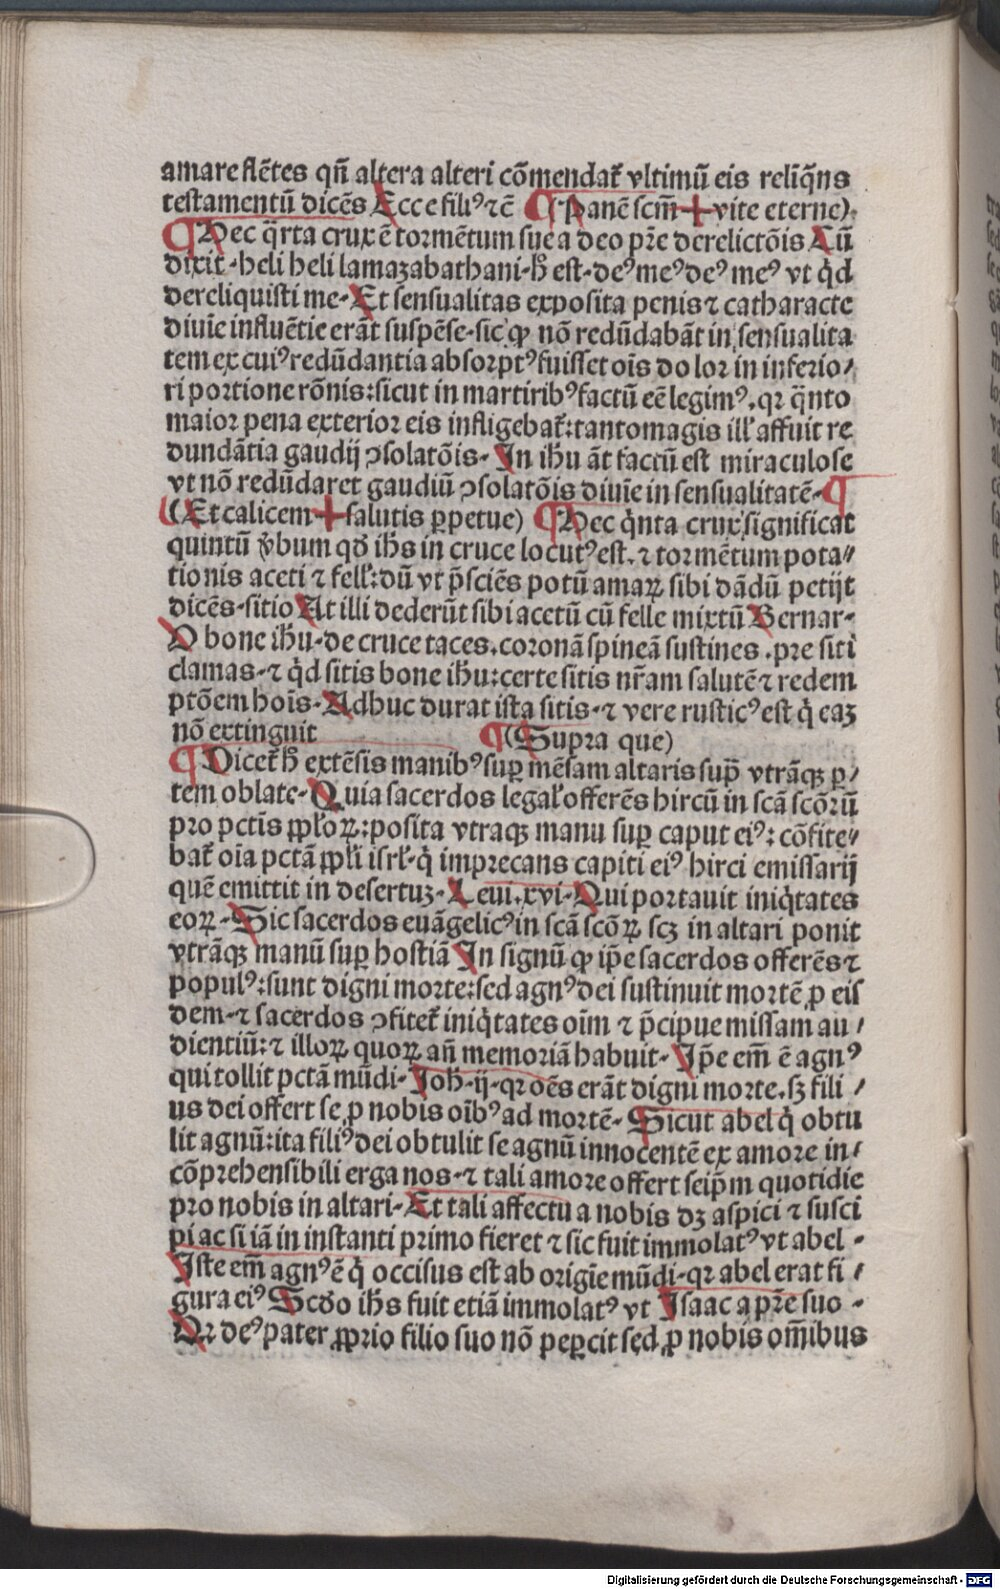 amare flētes qñ altera alteri cōmendat᷑ vltimū eis reliq̄ns
testamentū dicēs Ecce filiꝰ ⁊c̄ ¶ (Panē scm̄ + vite eterne)
¶ Hec q̈rta crux ē tormētum sue a deo pr̄e derelictōis Cū
dixit-heli heli lamazabathani-h̄ est-deꝰ meꝰ deꝰ meꝰ vt qͥd
dereliquisti me-Et sensualitas exposita penis ⁊ catharacte
diuīe influētie erāt suspēse-sic ꝙ nō redūdabāt in sensualita
tem ex cuiꝰ redūdantia absorptꝰ fuisset oīs dolor in inferio/
ri portione rōnis:sicut in martiribꝰ factū eē legimꝰ.qꝛ q̈nto
maior pena exterior eis infligebat᷑:tantomagis ill' affuit re
dundātia gaudij ↄsolatōis-In ihū āt factū est miraculose
vt nō redūdaret gaudiū ↄsolatōis diuīe in sensualitatē-¶
(Et calicem + salutis ꝑpetue) ¶ Hec qͥnta crux significat
quintū v̄bum qđ ihs̄ in cruce locutꝰ est.⁊ tormētum pota/
tionis aceti ⁊ fell':dū vt p̄sciēs potū amaꝝ sibi dādū petijt
dicēs-sitio At illi dederūt sibi acetū cū felle mixtū Bernar-
O bone ihū-de cruce taces.coronā spineā sustines.pre siti
clamas-⁊ qͥd sitis bone ihū:certe sitis nr̄am salutē ⁊ redem
ptōem hoīs-Adhuc durat ista sitis-⁊ vere rusticꝰ est qͥ eaȝ
nō extinguit ¶ (Supra que)
¶ Dicet᷑ h̄ extēsis manibꝰ suꝑ mēsam altaris sup̄ vtrāqꝫ ꝑ/
tem oblate-Quia sacerdos legal' offerēs hircū in scā scōrū
pro pctīs ppl'oꝝ:posita vtraqꝫ manu suꝑ caput eiꝰ: cōfite/
bat᷑ oīa pctā ppl'i isrl'-qͥ imprecans capiti eiꝰ hirci emissarij
quē emittit in desertuȝ-Leui.xvi-Qui portauit iniqͥtates
eoꝝ-Sic sacerdos euāgelicꝰ in scā scōꝝ scȝ in altari ponit
vtrāqꝫ manū suꝑ hostiā In signū ꝙ ip̄e sacerdos offerēs ⁊
populꝰ:sunt digni morte:sed agnꝰ dei sustinuit mortē ꝓ eis
dem-⁊ sacerdos ↄfitet᷑ iniqͥtates oīm ⁊ p̄cipue missam au/
dientiū:⁊ illoꝝ quoꝝ añ memoriā habuit-Ip̄e em̄ ē agnꝰ
qui tollit pctā mūdi-Joh̄-ij-qꝛ oēs erāt digni morte.sȝ fili/
us dei offert se ꝓ nobis oībꝰ ad mortē-Sicut abel qͥ obtu
lit agnū:ita filiꝰ dei obtulit se agnū innocentē ex amore in/
cōprehensibili erga nos-⁊ tali amore offert seip̄m quotidie
pro nobis in altari-Et tali affectu a nobis dȝ aspici ⁊ susci
pi ac si iā in instanti primo fieret ⁊ sic fuit immolatꝰ vt abel-
Iste em̄ agnꝰ ē qͥ occisus est ab origīe mūdi-qꝛ abel erat fi/
gura eiꝰ Scdo ihs̄ fuit etiā immolatꝰ vt Isaac a pr̄e suo-
Qꝛ deꝰ pater ꝓprio filio suo nō peꝑcit sed ꝓ nobis om̄ibus
Digitalisierung gefördert durch die Deutsche Forschungsgemeinschaft - DFG